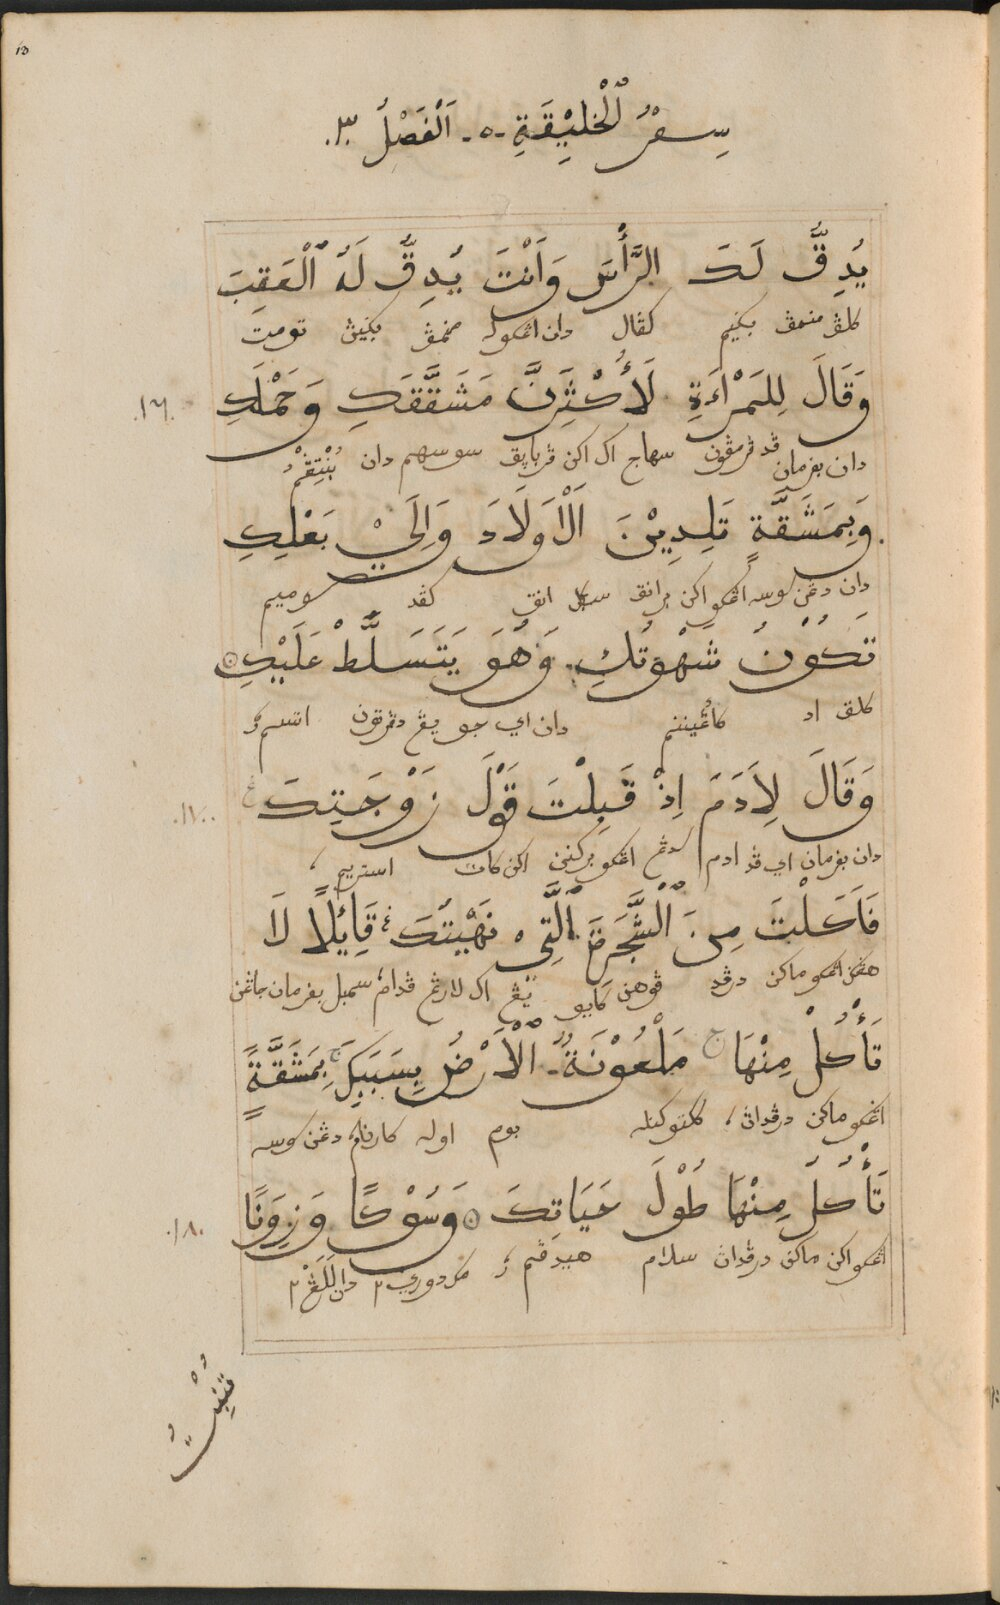 سِفْرُ ٱلْخَلِيْقَةِ -٥- اَلْفَصْلُ .٣.
يُدِقُّ لَكَ الرَّأْسَ وَاَنْتَ يُدِقُّ لَهُ ٱلْعَقِبَ
كلق منمڤ بݢيم كڤال دان اڠكوله منمڤ بݢيڽ تومت
وَقَالَ لِلمَرْاَةِ لَأُكْثِرَنَّ مَشَقَّتَكِ وَحَمْلَكِ
.١٦.
دان برفرمان ڤد ڤرمڤون سهاج اک اکن ڤرباڽق سوسهم دان بُنْتِڠْمُ
وَبِمَشَقَّةٍ تَلِدِيْنَ اَلْاَوْلَادَ وَاِلَيْ بَعْلِكِ
دان دڠن سوسه اڠکو اکن برانق سݢل انق کڤد سوميم
تَكُوْنُ شَهْوَتُكِ وَهُوَ يَتَسَلَّطْ عَلَيْكِ
کلق اد کاڠيننم دان اي جو يڠ دڤرتون اتسم
وَقَالَ لِاَدَمَ اِذْ قَبِلْتَ قَوْلَ زَوْجَتِكَ
.١٧.
دان برفرمان اي ڤد ادم سدڠ اڠکو برکنن اکن کات استريم
فَاَكَلْتَ مِنَ ٱلْشَّجَرَةِ ٱلَّتِي نَهَيْتُكَ قَائِلًا لَا
هڠݢ اڠکو ماکن درڤد ڤوهن کايو يڠ اک لارڠ ڤدام سمبل برفرمان جاڠن
تَأْكُلْ مِنْهَا مَلْعُوْنَةٌ ٱلْاَرْضُ بِسَبَبِكَ بِمَشَقَّةٍ
اڠکو ماکن درڤداڽ کتوکله بوم اوله کارنام دڠن سوسه
تَأْكُلُ مِنْهَا طُوْلَ حَيَاتِكَ وَشَوْكًا وَزِوَنًا
.١٨.
اڠکو اکن ماکن درڤداڽ سلام هيدڤم مک دوري٢ دان لَلَڠْ٢
تُنْبِتُ